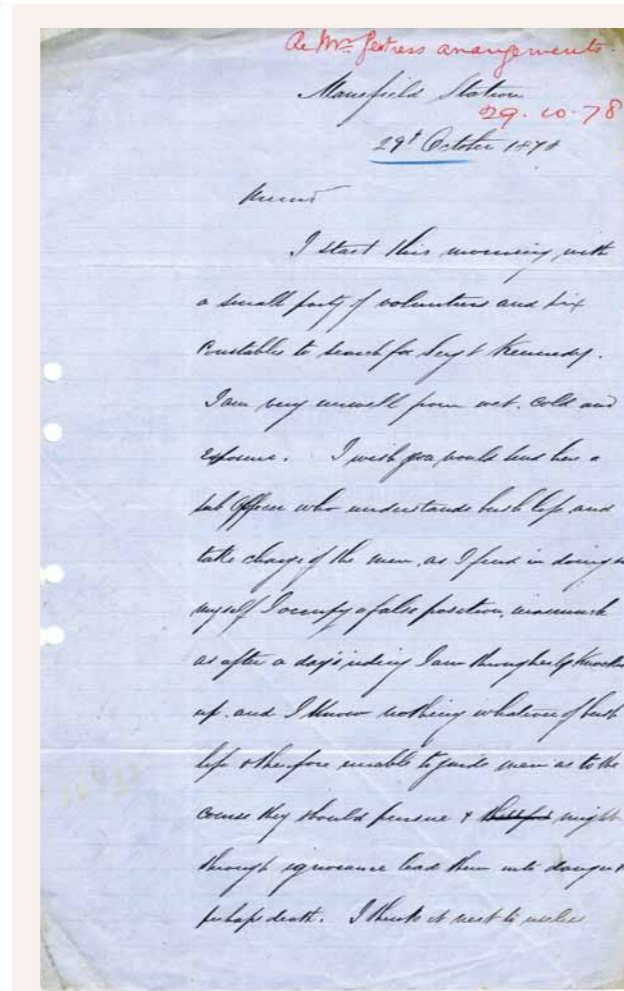 Re Mr. Pewtress arrangements.
Mansfield Station
29.10.78
29t October 1878
I start this morning with
a small party of volunteers and six
Constables to search for Sergt Kennedy.
I am very unwell from wet, cold and
exposure. I wish you would send here a
sub Officer who understands bush life and
take charge of the men, as I find in doing so
myself I occupy a false position, inasmuch
as after a day's riding I am thoroughly knocked
up. and I know nothing whatever of bush
life & therefore unable to guide men as to the
course they should pursue & therefore might
through ignorance lead them into danger &
perhaps death. I think it next to useless